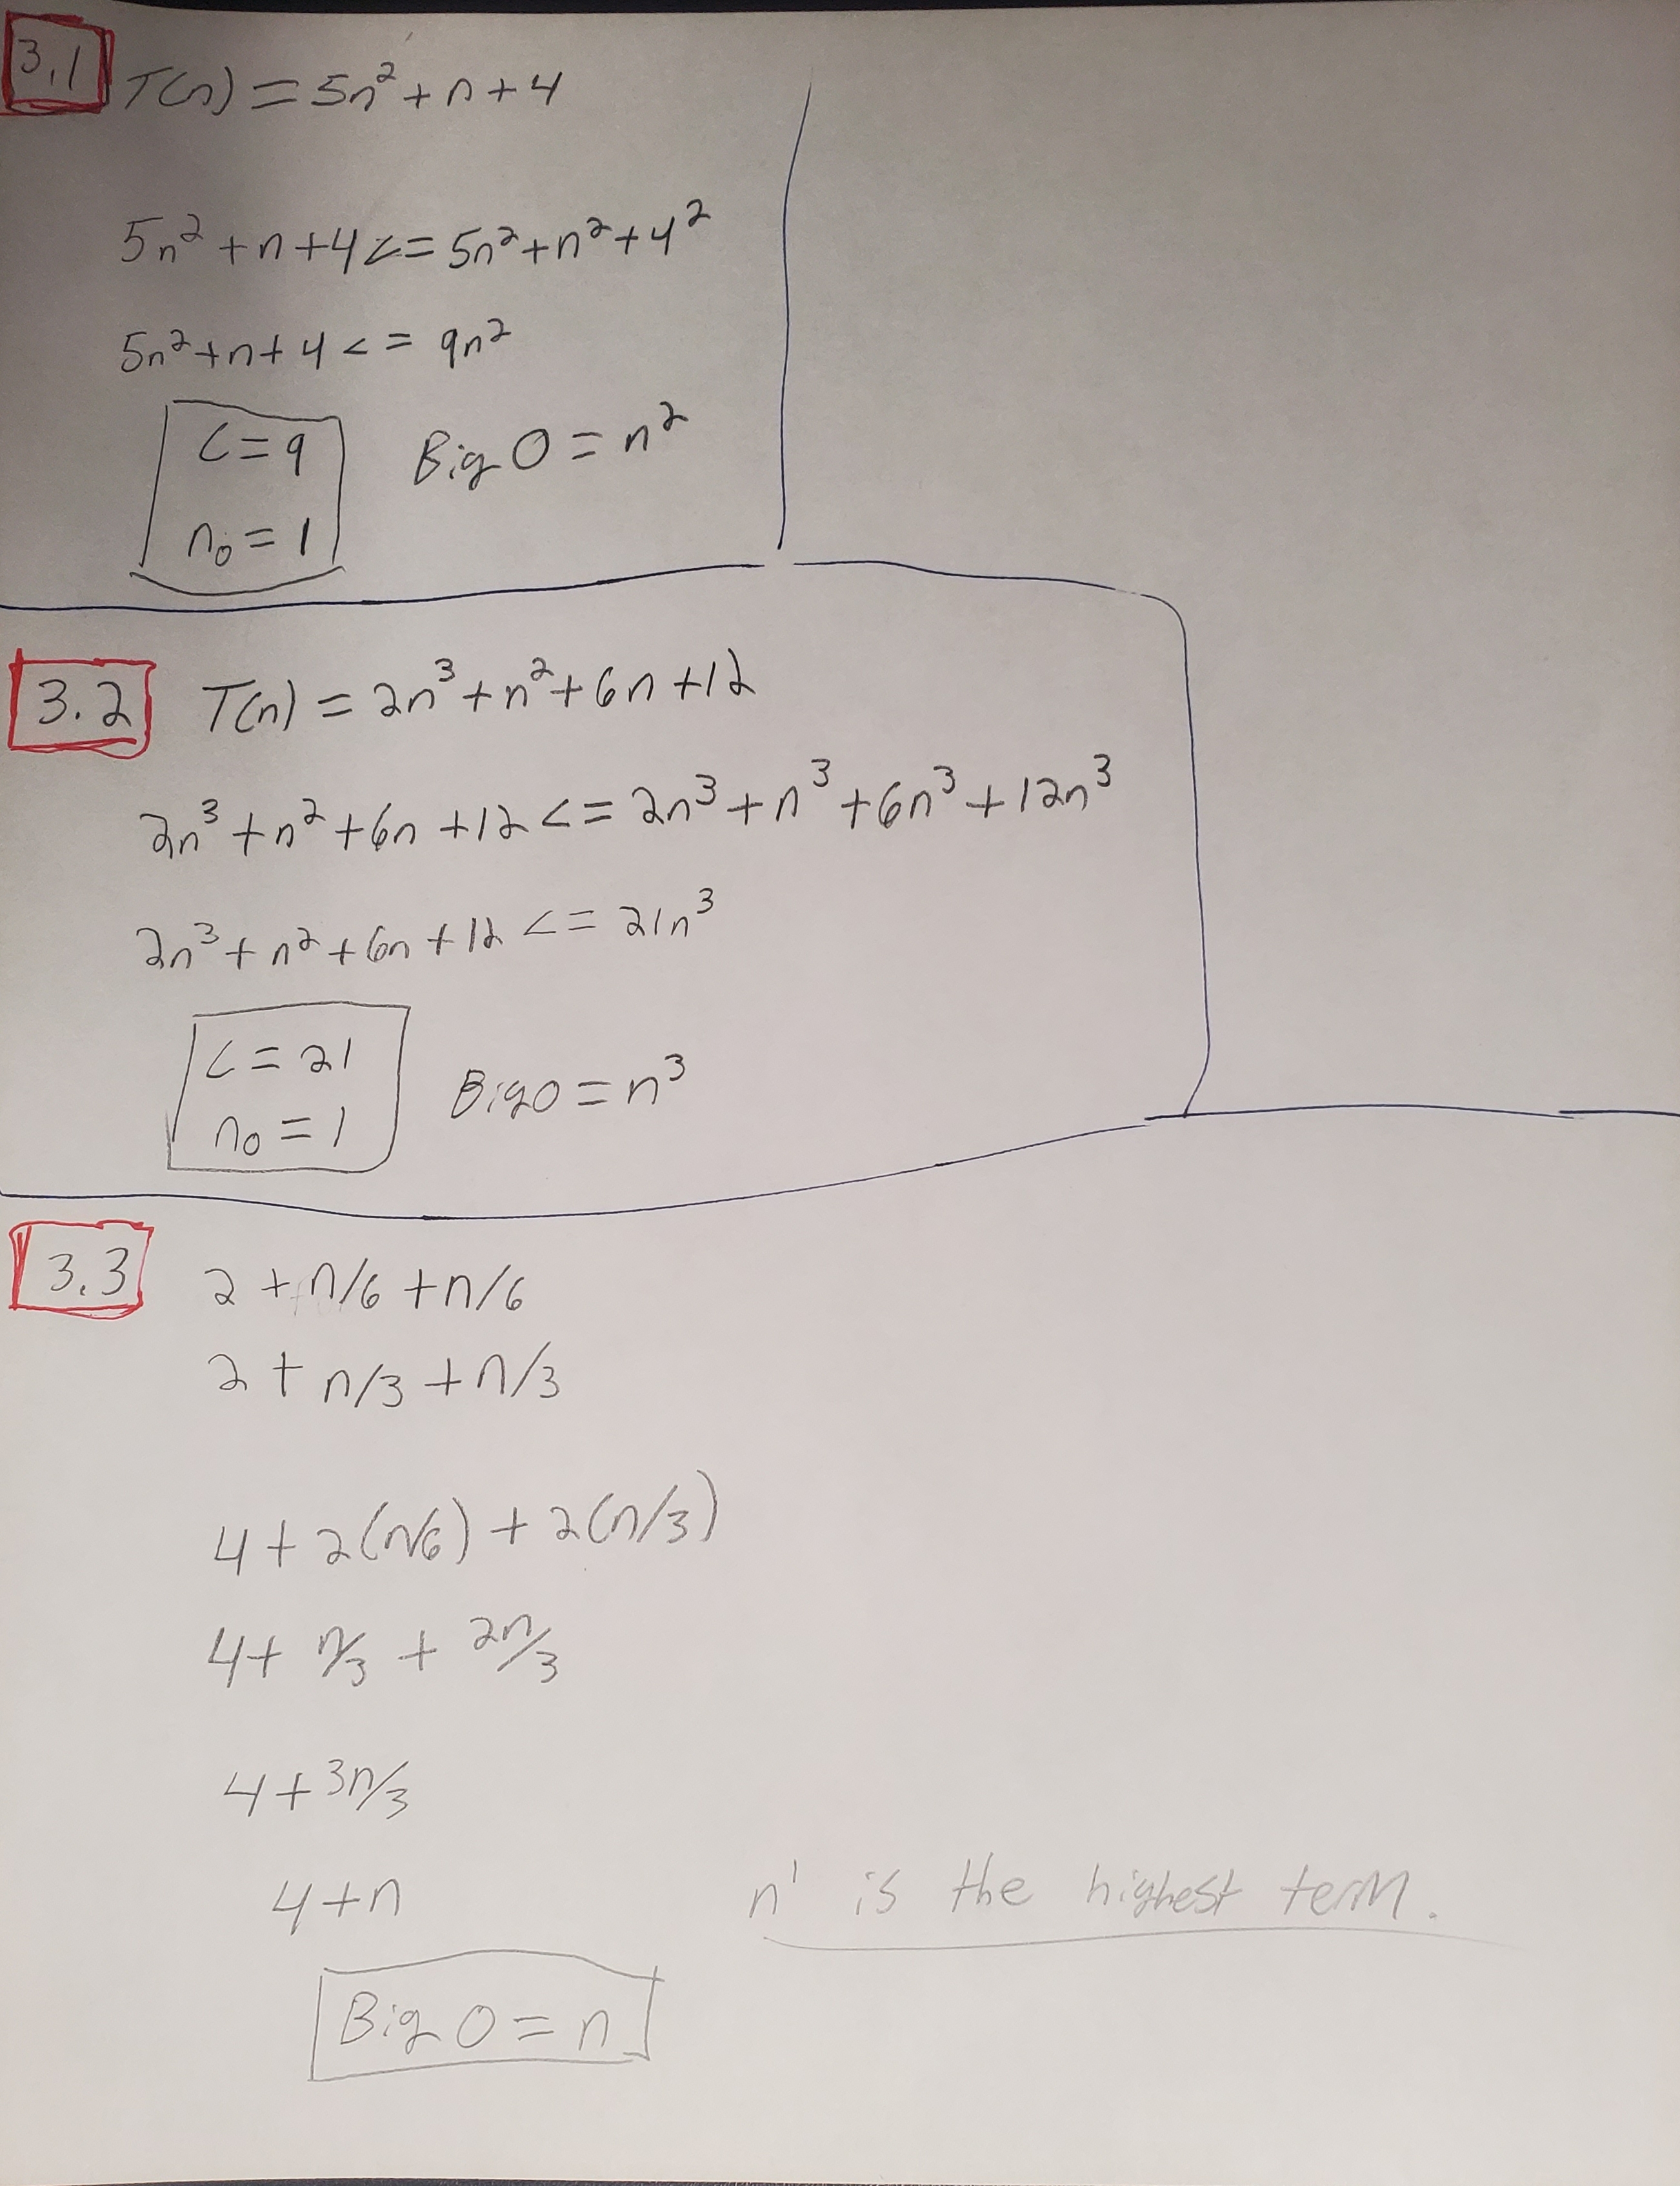 3.1 T(n) = 5n² + n + 4
5n² + n + 4 <= 5n² + n² + 4²
5n² + n + 4 <= 9n²
C = 9
n₀ = 1
Big O = n²
3.2 T(n) = 2n³ + n² + 6n + 12
2n³ + n² + 6n + 12 <= 2n³ + n³ + 6n³ + 12n³
2n³ + n² + 6n + 12 <= 21n³
C = 21
n₀ = 1
Big O = n³
3.3 2 + n/6 + n/6
2 + n/3 + n/3
4 + 2(n/6) + 2(n/3)
4 + n/3 + 2n/3
4 + 3n/3
4 + n
n¹ is the highest term.
Big O = n